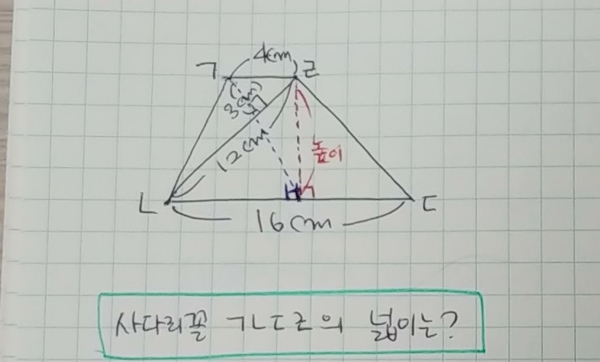 4cm
ㄱ ㄹ
3cm
12cm
높이
ㄴ ㄷ
16cm
사다리꼴 ㄱㄴㄷㄹ의 넓이는?